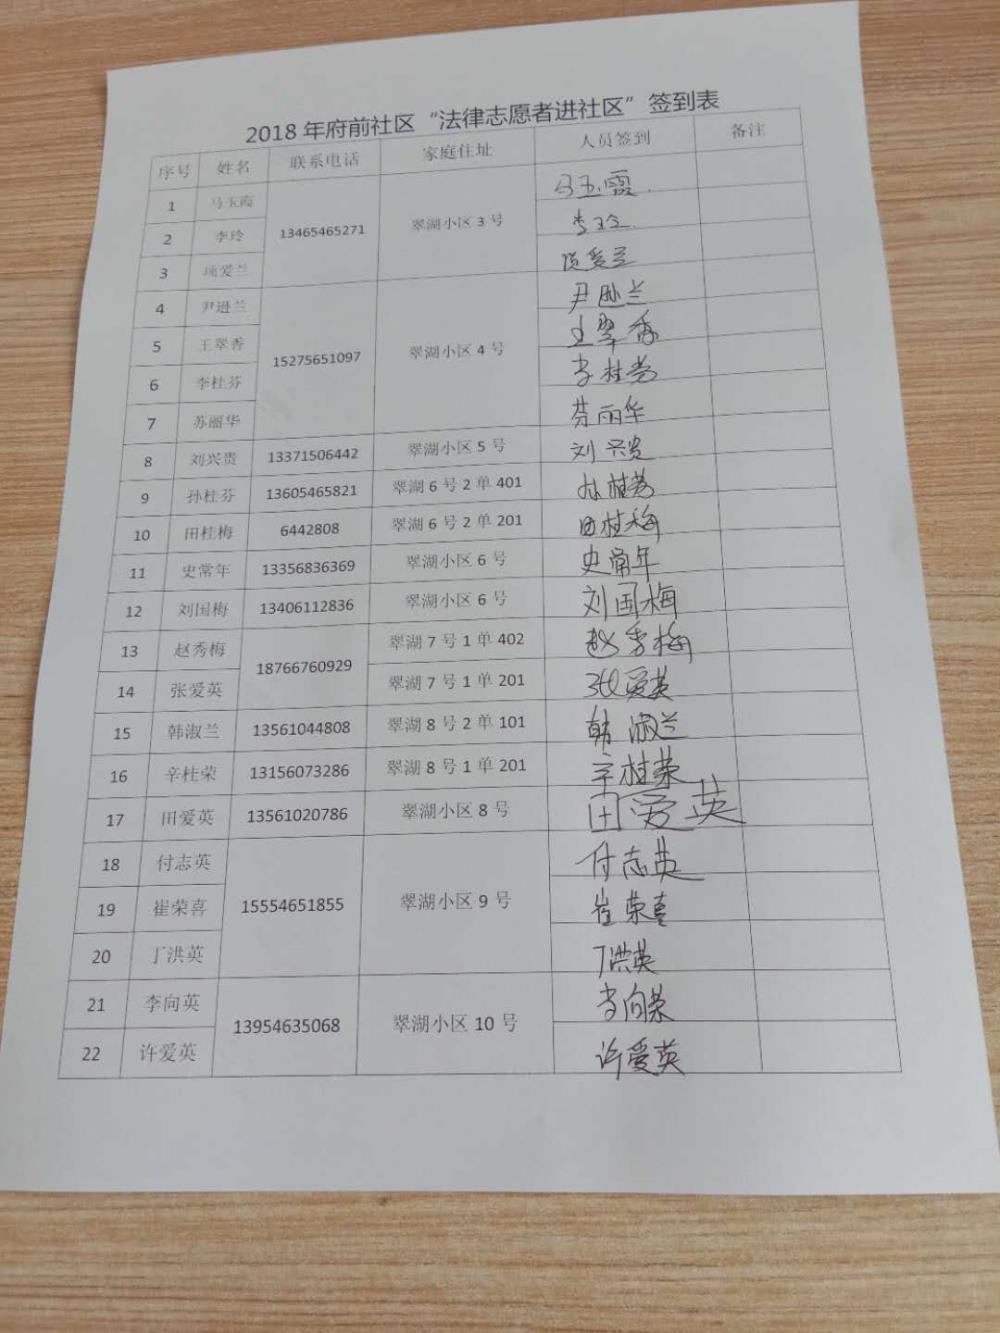 2018 年府前社区“法律志愿者进社区”签到表
序号 姓名 联系电话 家庭住址 人员签到 备注
1 马玉霞 13465465271 翠湖小区 3 号 马玉霞
2 李玲 李玲
3 项爱兰 项爱兰
4 尹逊兰 15275651097 翠湖小区 4 号 尹逊兰
5 王翠香 王翠香
6 李桂芬 李桂芬
7 苏丽华 苏丽华
8 刘兴贵 13371506442 翠湖小区 5 号 刘兴贵
9 孙桂芬 13605465821 翠湖 6 号 2 单 401 孙桂芬
10 田桂梅 6442808 翠湖 6 号 2 单 201 田桂梅
11 史常年 13356836369 翠湖小区 6 号 史常年
12 刘国梅 13406112836 翠湖小区 6 号 刘国梅
13 赵秀梅 18766760929 翠湖 7 号 1 单 402 赵秀梅
14 张爱英 翠湖 7 号 1 单 201 张爱英
15 韩淑兰 13561044808 翠湖 8 号 2 单 101 韩淑兰
16 辛桂荣 13156073286 翠湖 8 号 1 单 201 辛桂荣
17 田爱英 13561020786 翠湖小区 8 号 田爱英
18 付志英 15554651855 翠湖小区 9 号 付志英
19 崔荣喜 崔荣喜
20 丁洪英 丁洪英
21 李向英 13954635068 翠湖小区 10 号 李向荣
22 许爱英 许爱英